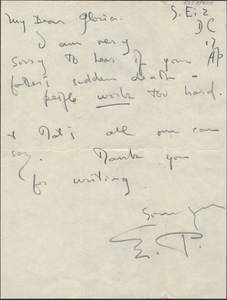 My Dear Gloria.
S.E.2
I am very
sorry to hear of your
father's sudden death -
people work too hard.
& that's all one can
say. Thank you
for writing
E. P.